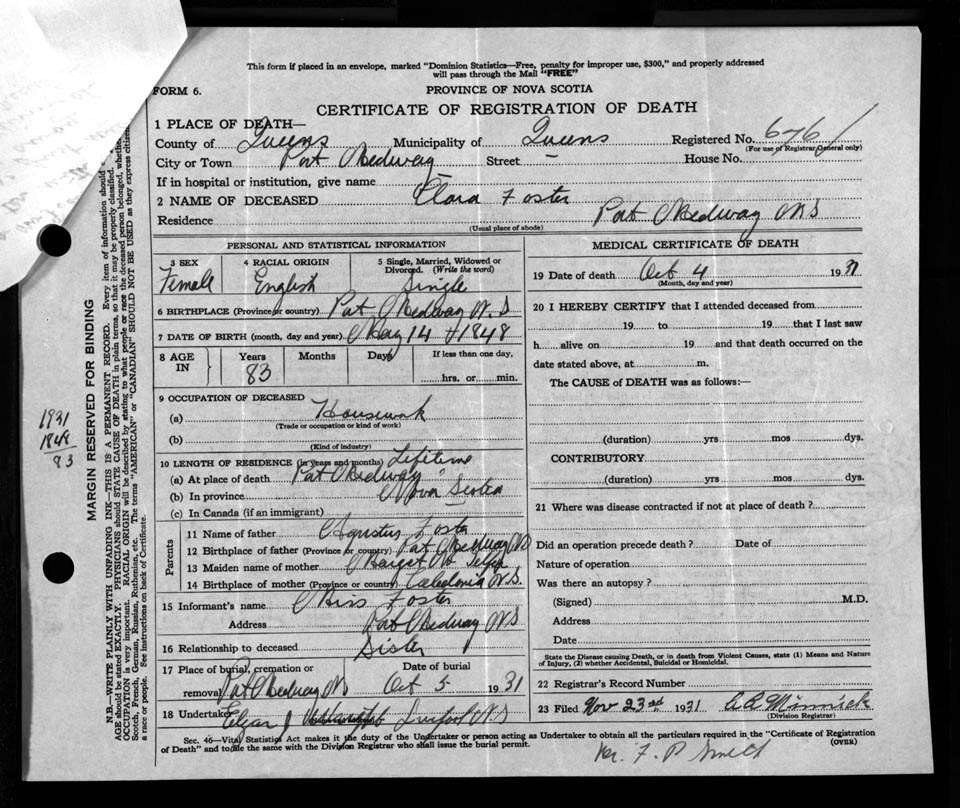 This form if placed in an envelope, marked "Dominion Statistics—Free, penalty for improper use, $300," and properly addressed
will pass through the Mail "FREE"
FORM 6.
PROVINCE OF NOVA SCOTIA
CERTIFICATE OF REGISTRATION OF DEATH
1 PLACE OF DEATH—
County of Queens Municipality of Queens Registered No. 676
(For use of Registrar General only)
City or Town Port Medway Street — House No.
If in hospital or institution, give name —
2 NAME OF DECEASED Clara Foster
Residence Port Medway N S
(Usual place of abode)
PERSONAL AND STATISTICAL INFORMATION
3 SEX 4 RACIAL ORIGIN 5 Single, Married, Widowed or
Divorced. (Write the word)
Female English Single
6 BIRTHPLACE (Province or country) Port Medway N. S
7 DATE OF BIRTH (month, day and year) May 14 1848
8 AGE IN Years Months Days If less than one day,
83 hrs. or min.
9 OCCUPATION OF DECEASED
(a) Housework
(Trade or occupation or kind of work)
(b)
(Kind of industry)
10 LENGTH OF RESIDENCE (in years and months) Lifetime
(a) At place of death Port Medway
(b) In province Nova Scotia
(c) In Canada (if an immigrant)
Parents
11 Name of father Foster
12 Birthplace of father (Province or country) Port Medway NS
13 Maiden name of mother
14 Birthplace of mother (Province or country) Caledonia N.S.
15 Informant's name Miss Foster
Address Port Medway N S
16 Relationship to deceased Sister
17 Place of burial, cremation or Date of burial
removal Port Medway NS Oct 5 1931
18 Undertaker Liverpool N S
MEDICAL CERTIFICATE OF DEATH
19 Date of death Oct 4 1931
(Month, day and year)
20 I HEREBY CERTIFY that I attended deceased from
19 to 19 that I last saw
h alive on 19 and that death occurred on the
date stated above, at m.
The CAUSE of DEATH was as follows:—
(duration) yrs mos dys.
CONTRIBUTORY
(duration) yrs. mos. dys.
21 Where was disease contracted if not at place of death?
Did an operation precede death? Date of
Nature of operation
Was there an autopsy?
(Signed) M.D.
Address
Date
State the Disease causing Death, or in death from Violent Causes, state (1) Means and Nature
of Injury, (2) whether Accidental, Suicidal or Homicidal.
22 Registrar's Record Number
23 Filed Nov 23rd 1931
(Division Registrar)
Sec. 46—Vital Statistics Act makes it the duty of the Undertaker or person acting as Undertaker to obtain all the particulars required in the "Certificate of Registration
of Death" and to file the same with the Division Registrar who shall issue the burial permit.
(OVER)
Mr. F. P Smith
1931
1848
83
MARGIN RESERVED FOR BINDING
N.B.—WRITE PLAINLY WITH UNFADING INK—THIS IS A PERMANENT RECORD. Every item of information should
AGE should be stated EXACTLY. PHYSICIANS should STATE CAUSE OF DEATH in plain terms, so that it may be properly classified.
OCCUPATION is very important. RACIAL ORIGIN will be described by stating to what people or race the deceased person belonged, whether
Scotch, French, German, Russian, Ruthenian, etc. The terms "AMERICAN" or "CANADIAN" SHOULD NOT BE USED as they express citizen
a race or people. See instructions on back of Certificate.